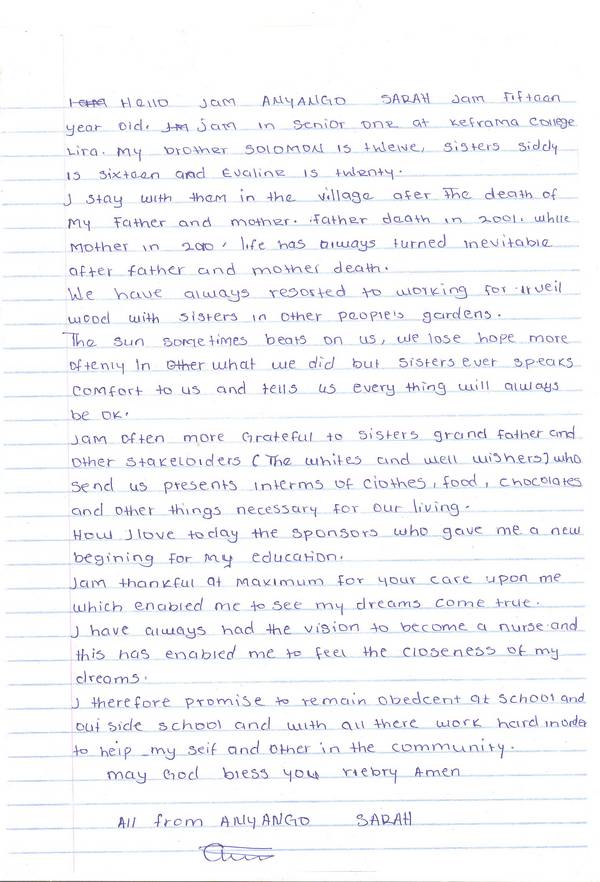 Hello Jam ANYANGO SARAH Jam Fiftaan
year old. Jam in senior one at Keframa College
Lira. My brother SOLOMON is twelve, sisters siddy
is sixteen and Evaline is twenty.
J stay with them in the village afer The death of
My Father and mother. Father death in 2001. while
Mother in 2010, life has always turned inevitable
after father and mother death.
We have always resorted to working for
wood with sisters in other people's gardens.
The sun sometimes beats on us, we lose hope more
oftenly In other what we did but sisters ever speaks
comfort to us and tells us every thing will always
be OK.
Jam often more Grateful to sisters grand father and
other stakeloiders (The whites and well wishers) who
send us presents interms of clothes, food, chocolates
and other things necessary for our living.
How J love today the sponsors who gave me a new
begining for my education.
Jam thankful at Maximum for your care upon me
which enabled me to see my dreams come true.
J have always had the vision to become a nurse and
this has enabled me to feel the closeness of my
dreams.
J therefore promise to remain obedcent at school and
out side school and with all there work hard inorder
to help my self and other in the community.
may God bless you Amen
All from ANYANGO SARAH